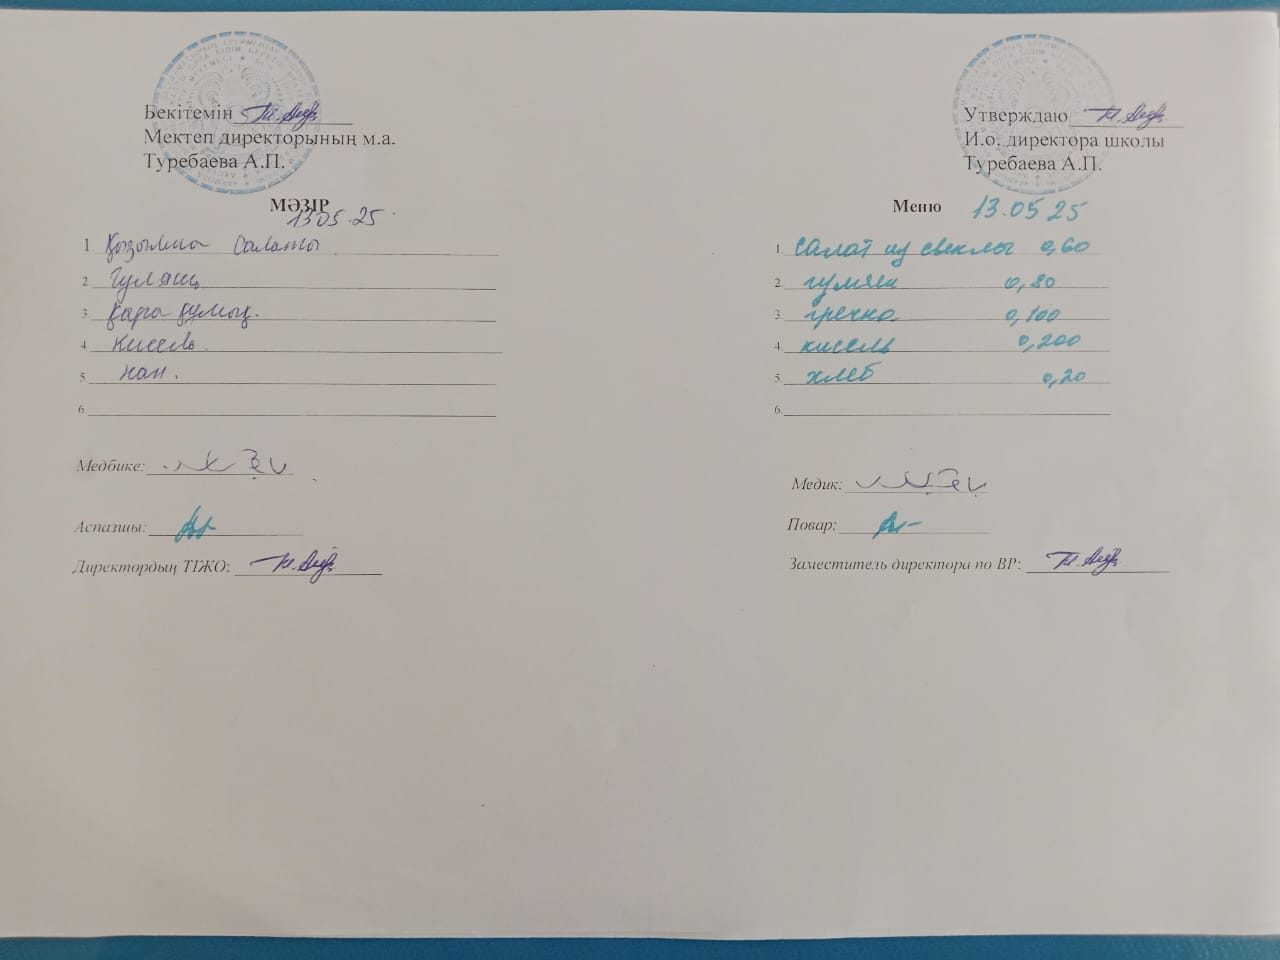 Бекітемін
Мектеп директорының м.а.
Туребаева А.П.
МӘЗІР
13.05.25
1. Қызылша салаты
2. Гуляш
3. Қара құмық.
4. Кисель.
5. Нан.
6.
Медбике:
Аспазшы:
Директордың ТІЖО:
Утверждаю
И.о. директора школы
Туребаева А.П.
Меню 13.05 25
1. Салат из свеклы 0,60
2. гуляш 0,80
3. гречка 0,100
4. кисель 0,200
5. хлеб 0,20
6.
Медик:
Повар:
Заместитель директора по ВР: